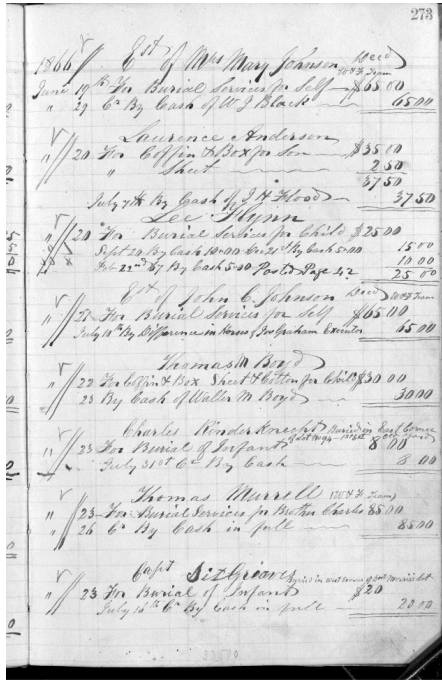 273
1866 Est of Mrs Mary Johnson Decd
W & F Team
June 19th For Burial Services for Self $65.00
" 29 Cr By Cash of W J Black 65 00
Laurence Anderson
" 20 For Coffin & Box for Son $35.00
" Sheet 2 50
37 50
July 7th By Cash of J H Flood 37 50
Lee Flynn
" 20 For Burial Services for Child $25 00
Sept 20 By Cash 10.00 21st By Cash 5.00 15 00
Feb 22nd 67 By Cash 5.00 Posted Page 42 10 00
25 00
Est of John C Johnson Decd W & F Team
" 21 For Burial Services for Self $65.00
July 10th By Difference in Horses of Jos Graham Executor 65 00
Thomas M Boyd
" 22 For Coffin & Box Sheet & Cotton for Child $30.00
23 By Cash of Waller M Boyd 30 00
Charles Kinder Knecht Buried in East Corner
" 23 For Burial of Infant 8 00
July 31st Cr By Cash 8 00
Thomas Murrell (W & F Team)
" 23 For Burial Services for Brother Charles 85 00
" 26 Cr By Cash in full 85 00
Capt Sizgrieaves Buried in west corner of
" 23 For Burial of Infant $20
July 14th Cr By Cash in full 20.00